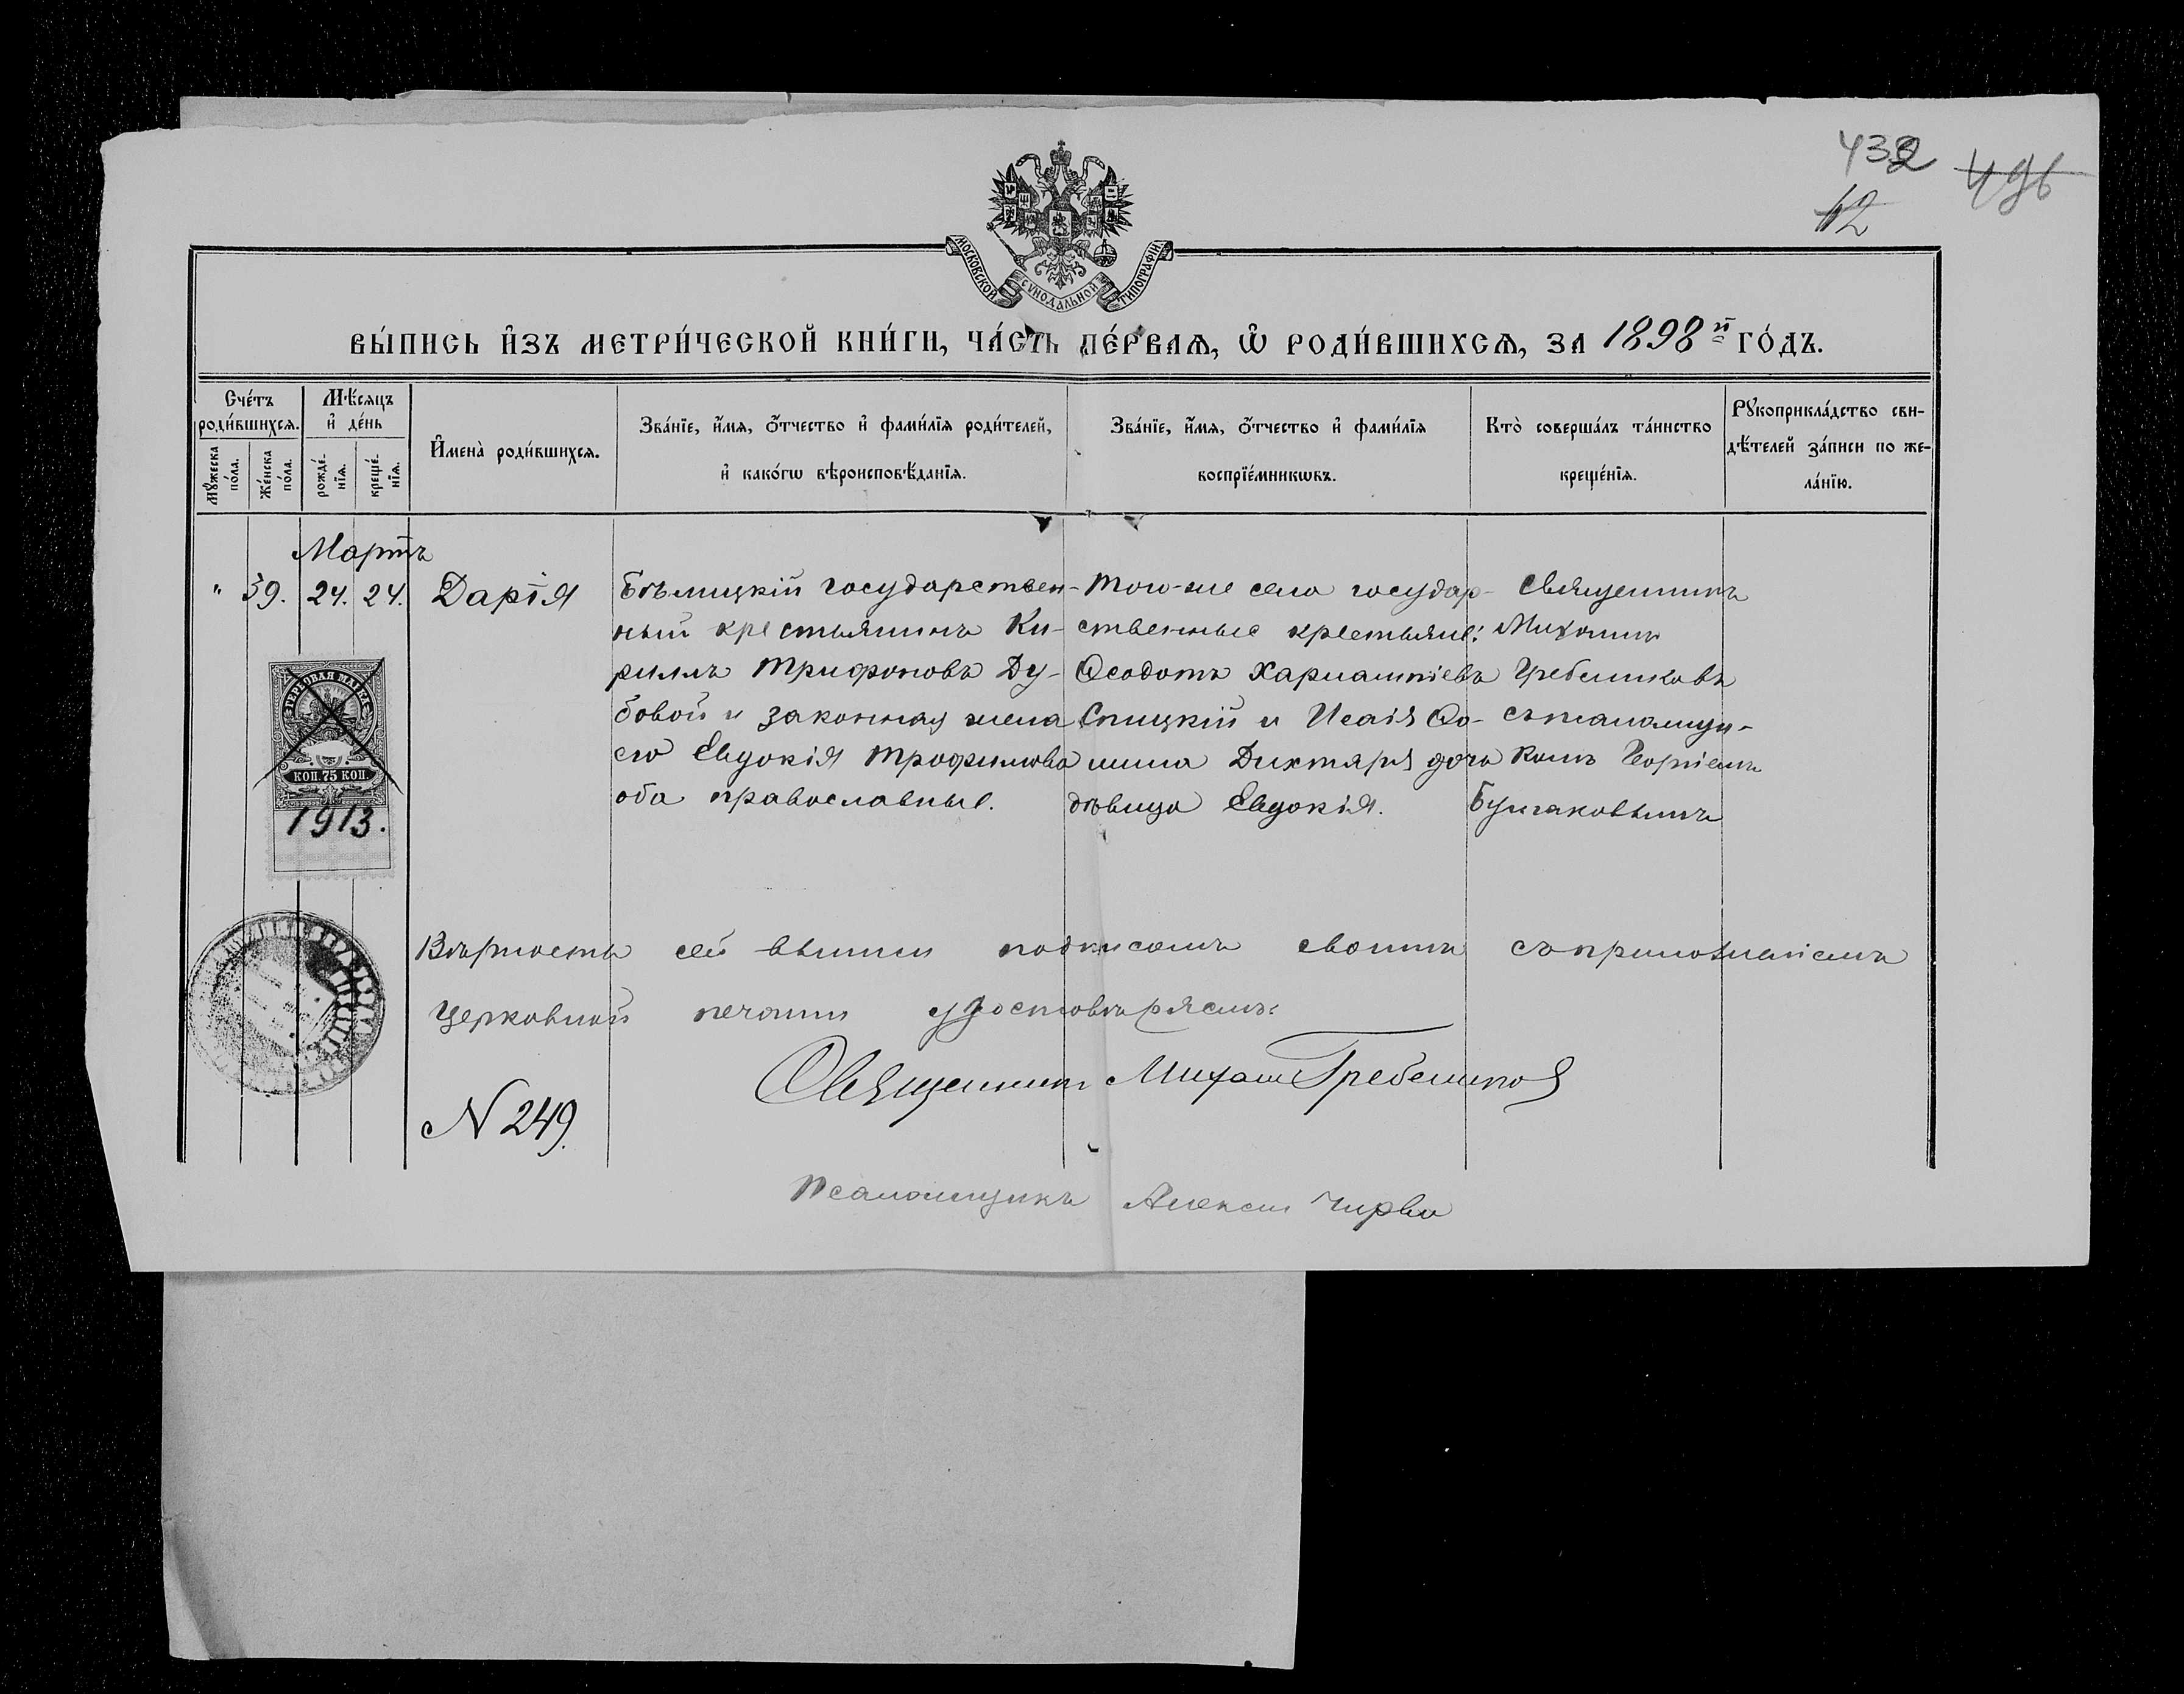 432 496
12
МОСКОВСКОЙ СѴНОДАЛЬНОЙ ТИПОГРАФІИ
ВЫ́ПИСЬ И҆ЗЪ МЕТРИ́ЧЕСКОЙ КНИ́ГИ, ЧА́СТЬ ПЕ́РВАѦ, Ѽ РОДИ́ВШИХСѦ, ЗА 1898й ГО́ДЪ.
Сче́тъ роди́вшихсѧ.
Мꙋ́жеска по́ла.
Же́нска по́ла.
Мѣ́сяцъ и҆ де́нь
рожде́-нїѧ.
креще́-нїѧ.
И҆мена̀ роди́вшихсѧ.
Зва́нїе, и҆́мѧ, ѻ҆́тчество и҆ фами́лїѧ роди́телей,
и҆ како́гѡ вѣроисповѣ́данїѧ.
Зва́нїе, и҆́мѧ, ѻ҆́тчество и҆ фами́лїѧ
воспрїе́мникѡвъ.
Кто̀ соверша́лъ та́инство
креще́нїѧ.
Рꙋкоприкла́дство сви-
дѣ́телей за́писи по же-
ла́нїю.
Мартъ
" 39. 24. 24. Дарія
Бѣлицкій государствен-
ный крестьянинъ Ки-
риллъ Трифоновъ Ду-
бовой и законная жена
его Евдокія Трофимова
оба православные.
Того-же села государ-
ственные крестьяне:
Ѳеодотъ Харлампіевъ
Спицкій и Исаія Ѳо-
мина Дихтяря дочь
дѣвица Евдокія.
Священникъ
Михаилъ
Гребениковъ
съ псаломщи-
комъ Георгіемъ
Булгаковымъ
ГЕРБОВАЯ МАРКА
КОП. 75 КОП.
1913.
Вѣрность сей выписи подписомъ своимъ съ приложеніемъ
церковной печати удостовѣряемъ:
Священникъ Михаилъ Гребениковъ
N 249.
Псаломщикъ Алексій Чирва